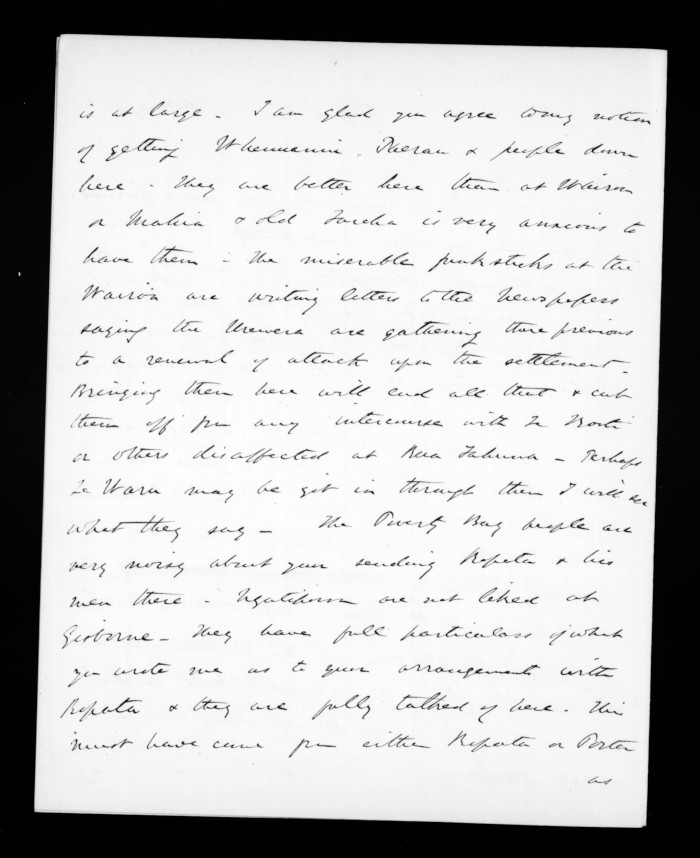 is at large - I am glad you agree to my notion
of getting Whenuanui, Paerau & people down
here - They are better here than at Wairoa
or Mahia & old Tareha is very anxious to
have them - The miserable funksticks at the
Wairoa are writing letters to the Newspapers
saying the Urewera are gathering there previous
to a renewal of attack upon the settlement -
Bringing them here will end all that & cut
them off fm any intercourse with Te Kooti
or others disaffected at Rua Tahuna - Perhaps
Te Waru may be got in through them I will see
what they say - The Poverty Bay people are
very noisy about your sending Ropata & his
men there - Ngatiporou are not liked at
Gisborne - They have full particulars of what
you wrote me as to your arrangements with
Ropata & they are fully talked of here. This
must have come fm either Ropata or Porter
as